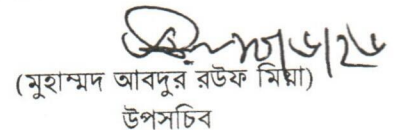 (মুহাম্মদ আবদুর রউফ মিয়া)
উপসচিব